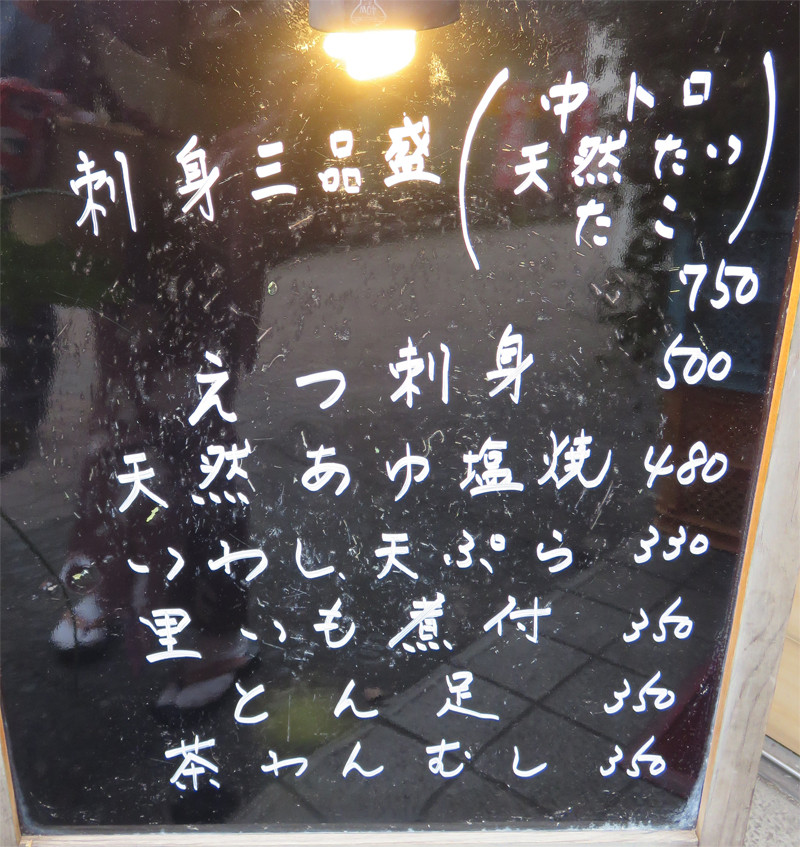 刺身三品盛(中トロ
天然たい
たこ)
750
えつ刺身 500
天然あゆ塩焼 480
いわし天ぷら 330
里いも煮付 350
とん足 350
茶わんむし 350